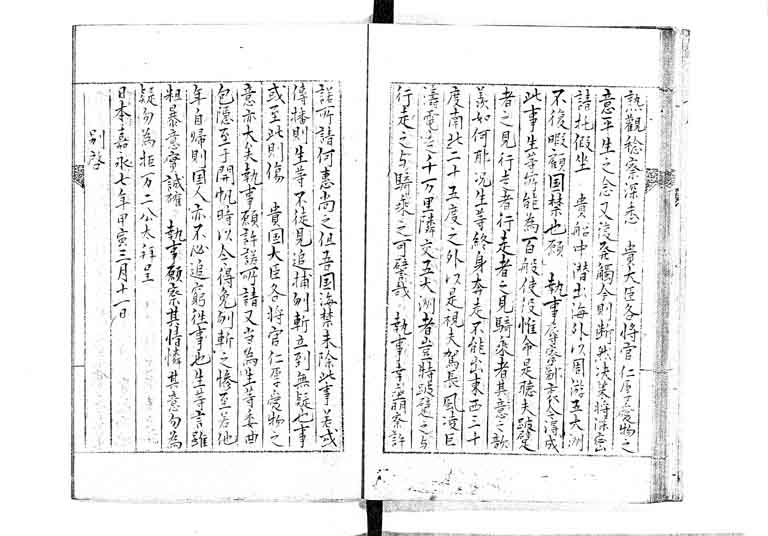 熟觀稔察深悉　貴大臣各将官仁厚愛物之
意平生之念又復発觸今則断然决策将深密
請托假坐　貴船中潜出海外以周游五大洲
不復暇顧国禁也願　執事辱察鄙衷令得成
此事生等所能為百般使役惟命是聴夫跛躄
者之見行走者行走者之見騎乗者其意之歆
羨如何耶况生等終身奔走不能出東西三十
度南北二十五度之外以是視夫駕長風凌巨
濤電走千万里隣交五大洲者豈特跛躄之与
行走之与騎乗之可譬哉　執事幸垂明察許
諾所請何恵尚之但吾国海禁未除此事若或
傳播則生等不徒見追捕刎斬立到無疑也事
或至此則傷　貴国大臣各将官仁厚愛物之
意亦大矣執事願許諾所請又当為生等委曲
包隠至于開帆時以令得免刎斬之惨至若他
年自帰則国人亦不必追窮往事也生等言雖
粗暴意實誠確　執事願察其情憐其意勿為
疑勿為拒万二公太拜呈
日本嘉永七年甲寅三月十一日
別啓